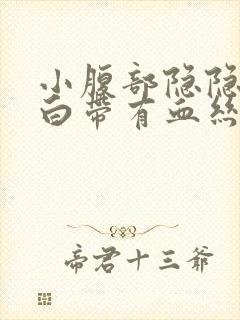 小腹部隐隐
白带有血丝
帝君十三爷